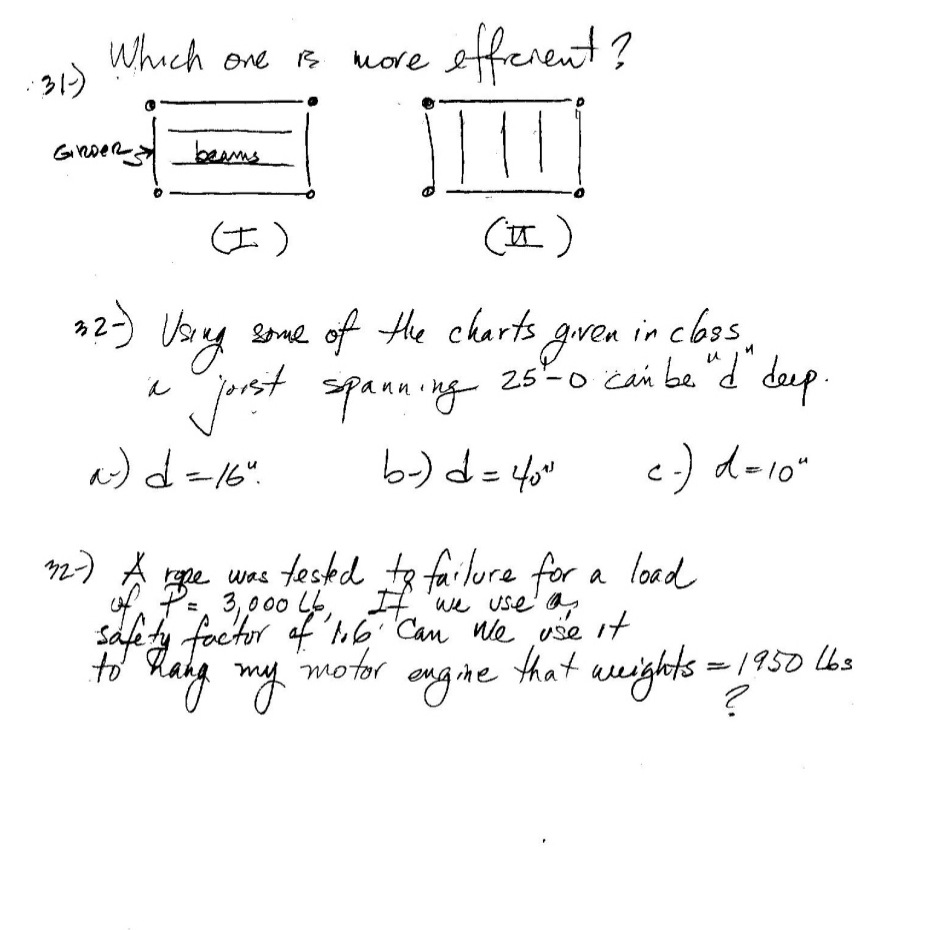 31-) Which one is more efficient?
GIRDER beams
(I) (II)
32-) Using some of the charts given in class
a joist spanning 25'-0 can be "d" deep.
a-) d = 16". b-) d = 40" c-) d = 10"
32-) A rope was tested to failure for a load
of P = 3,000 Lb, If we use a
safety factor of 1.6 Can we use it
to hang my motor engine that weights = 1950 lbs
?